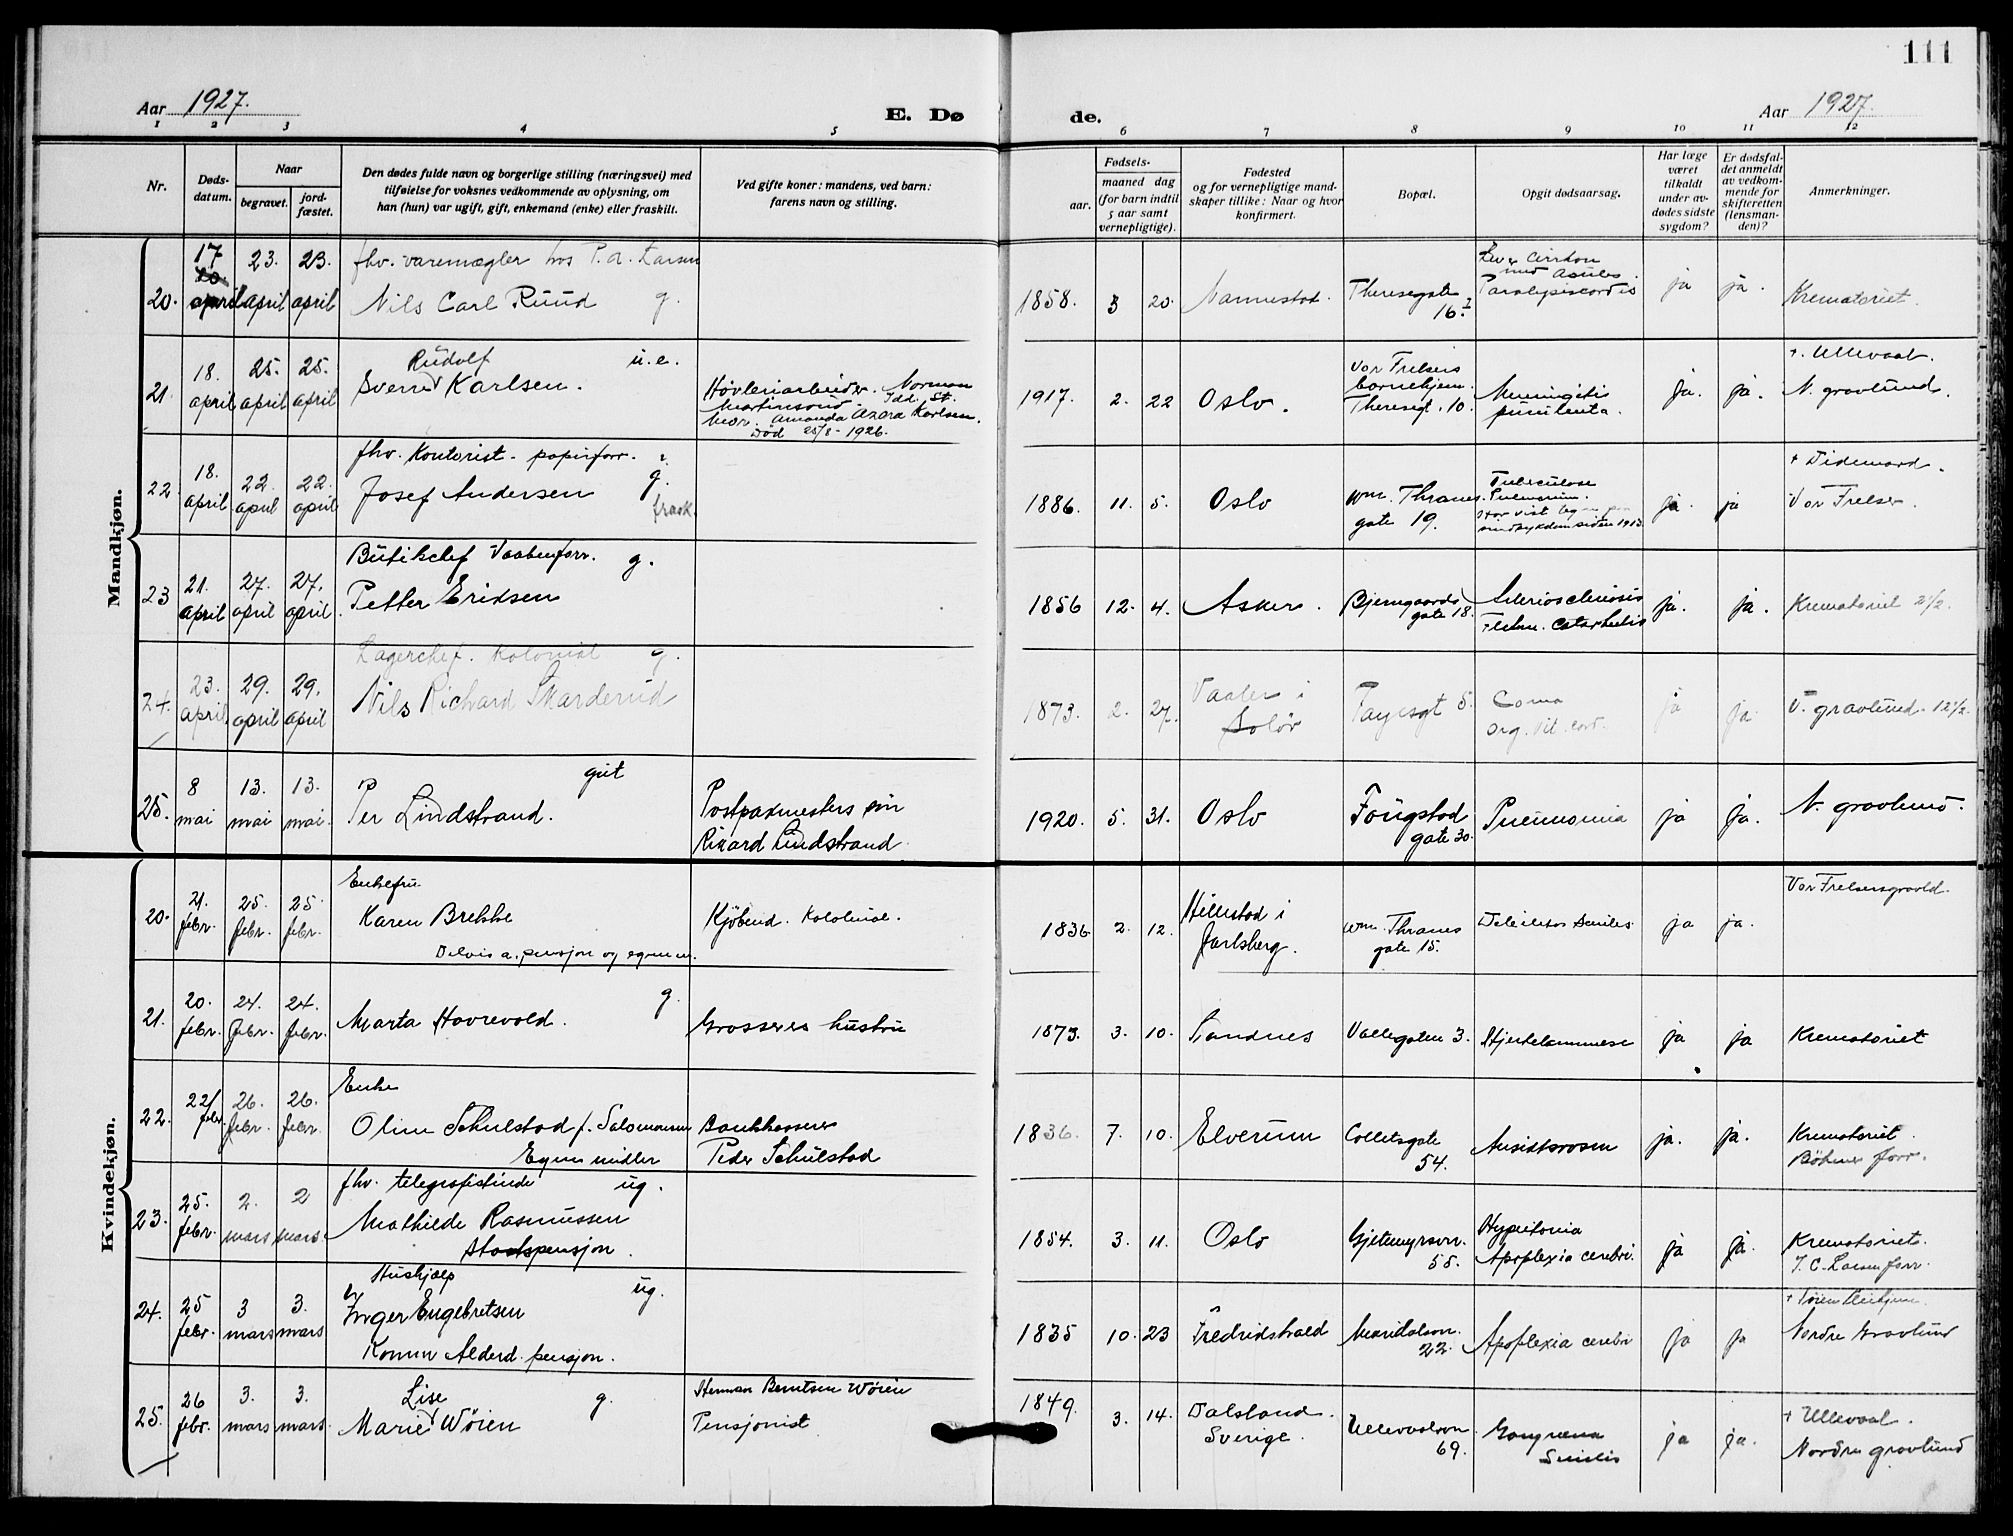 111
Aar 1927.
E. Dø
de.
Aar 1927.
1 2 3 4 5 6 7 8 9 10 11 12
Nr.
Døds-
datum.
Naar
begravet.
jord-
fæstet.
Den dødes fulde navn og borgerlige stilling (næringsvei) med
tilføielse for voksnes vedkommende av oplysning, om
han (hun) var ugift, gift, enkemand (enke) eller fraskilt.
Ved gifte koner: mandens, ved barn:
farens navn og stilling.
Fødsels-
aar.
maaned dag
(for barn indtil
5 aar samt
vernepligtige).
Fødested
og for vernepligtige mand-
skaper tillike: Naar og hvor
konfirmert.
Bopæl.
Opgit dødsaarsag.
Har læge
været
tilkaldt
under av-
dødes sidste
sygdom?
Er dødsfal-
det anmeldt
av vedkom-
mende for
skifteretten
(lensman-
den)?
Anmerkninger.
Mandkjøn.
20.
17
20.
april
23.
april
23.
april
fhv. varemægler hos P. A. Larsen
Nils Carl Ruud g.
1858. 3 20.
Nannestad.
Theresegate
16 I
Lever Cirrhon
med
Paralysis cordis
ja ja.
Krematoriet.
21.
18.
april
25.
april
25.
april
Rudolf u.e.
Sverre Karlsen.
Høvleriarbeider. Norman
Martinsoud. Idd. St.
Mor. Amanda Azora Karlsen.
Død 25/8 - 1926.
1917. 2. 22
Oslo.
Vor Frelsers
barnehjem.
Theresegt. 10.
Meningitis
purulenta.
ja. ja.
+. Ullevaal.
N. gravlund.
22.
18.
april
22.
april
22.
april
fhv. Kontorist - papirforr.
Josef Andersen g.
frask.
1886. 11. 5.
Oslo
Wm. Thranes
gate 19.
Tuberculose
Pulmonum.
sindsykdom siden 1913.
ja. ja
Vor Frelser.
23
21.
april
27.
april
27.
april
Butikchef Vaabenforr. g.
Petter Eriksen
1856 12. 4.
Asker.
Bjerregaards
gate 18.
Arteriosclerosis
catarrhalis
ja. ja.
Krematoriet 2½.
24.
23.
april
29.
april
29.
april
Lagerchef. Kolonial g.
Nils Richard Skarderud
1873. 2. 27.
Vaaler i
Solør
Fayesgt 5.
Coma
org. vit. cord.
ja ja.
V. gravlund. 12½.
25.
8
mai
13.
mai
13.
mai.
gut
Per Lindstrand.
Postpakmesters søn
Rikard Lindstrand.
1920. 5. 31.
Oslo
Fougstad
gate 30.
Pneumonia
ja ja.
N. gravlund.
Kvindekjøn.
20.
21.
febr.
25.
febr.
25.
febr.
Enkefru
Karen Brekke
Delvis a. pensjon og egne m.
Kjøbmd. Kolonial.
1836 2. 12.
Hillestad i
Jarlsberg.
Wm. Thranes
gate 15.
Debilitas Senilis
ja ja.
Vor Frelsersgravld.
21.
20.
febr.
24.
febr.
24.
febr.
g.
Marta Havrevold.
Grosseres hustru
1873. 3. 10.
Sandnes
Vallegaten 3.
Hjertelammelse
ja ja
Krematoriet
22.
22/
febr.
26.
febr.
26.
febr.
Enke
Oline Schulstad f. Salomonsen
Egne midler
Bankkasserer
Peder Schulstad
1836. 7. 10.
Elverum
Colletsgate
54.
Ansiktsrosen
ja. ja.
Krematoriet.
Bøhmer forr.
23.
25.
febr.
2.
mars
2
mars.
fhv. telegrafistinde ug.
Mathilde Rasmussen
Statspensjon.
1854. 3. 11.
Oslo
Gjetemyrsvn.
55.
Hypertonia
Apoplexia cerebri.
ja ja.
Krematoriet.
J. C. Larsen forr.
24.
25
febr.
3
mars
3.
mars
Hushjælp
Inger Engebretsen ug.
Komm Alderd. pensjon.
1835 10. 23
Fredrikshald
Maridalsvn.
22.
Apoplexia cerebri
ja ja
Nordre Gravlund
25.
26
febr.
3.
mars
3.
mars.
Lise g.
Marie Wøien
Herman Berntsen Wøien
Pensjonist
1849. 3. 14.
Dalsland.
Sverige.
Ullevaalsvn
69.
Gangræna
Senilis
ja ja.
+ Ullevaal.
Nordre gravlund